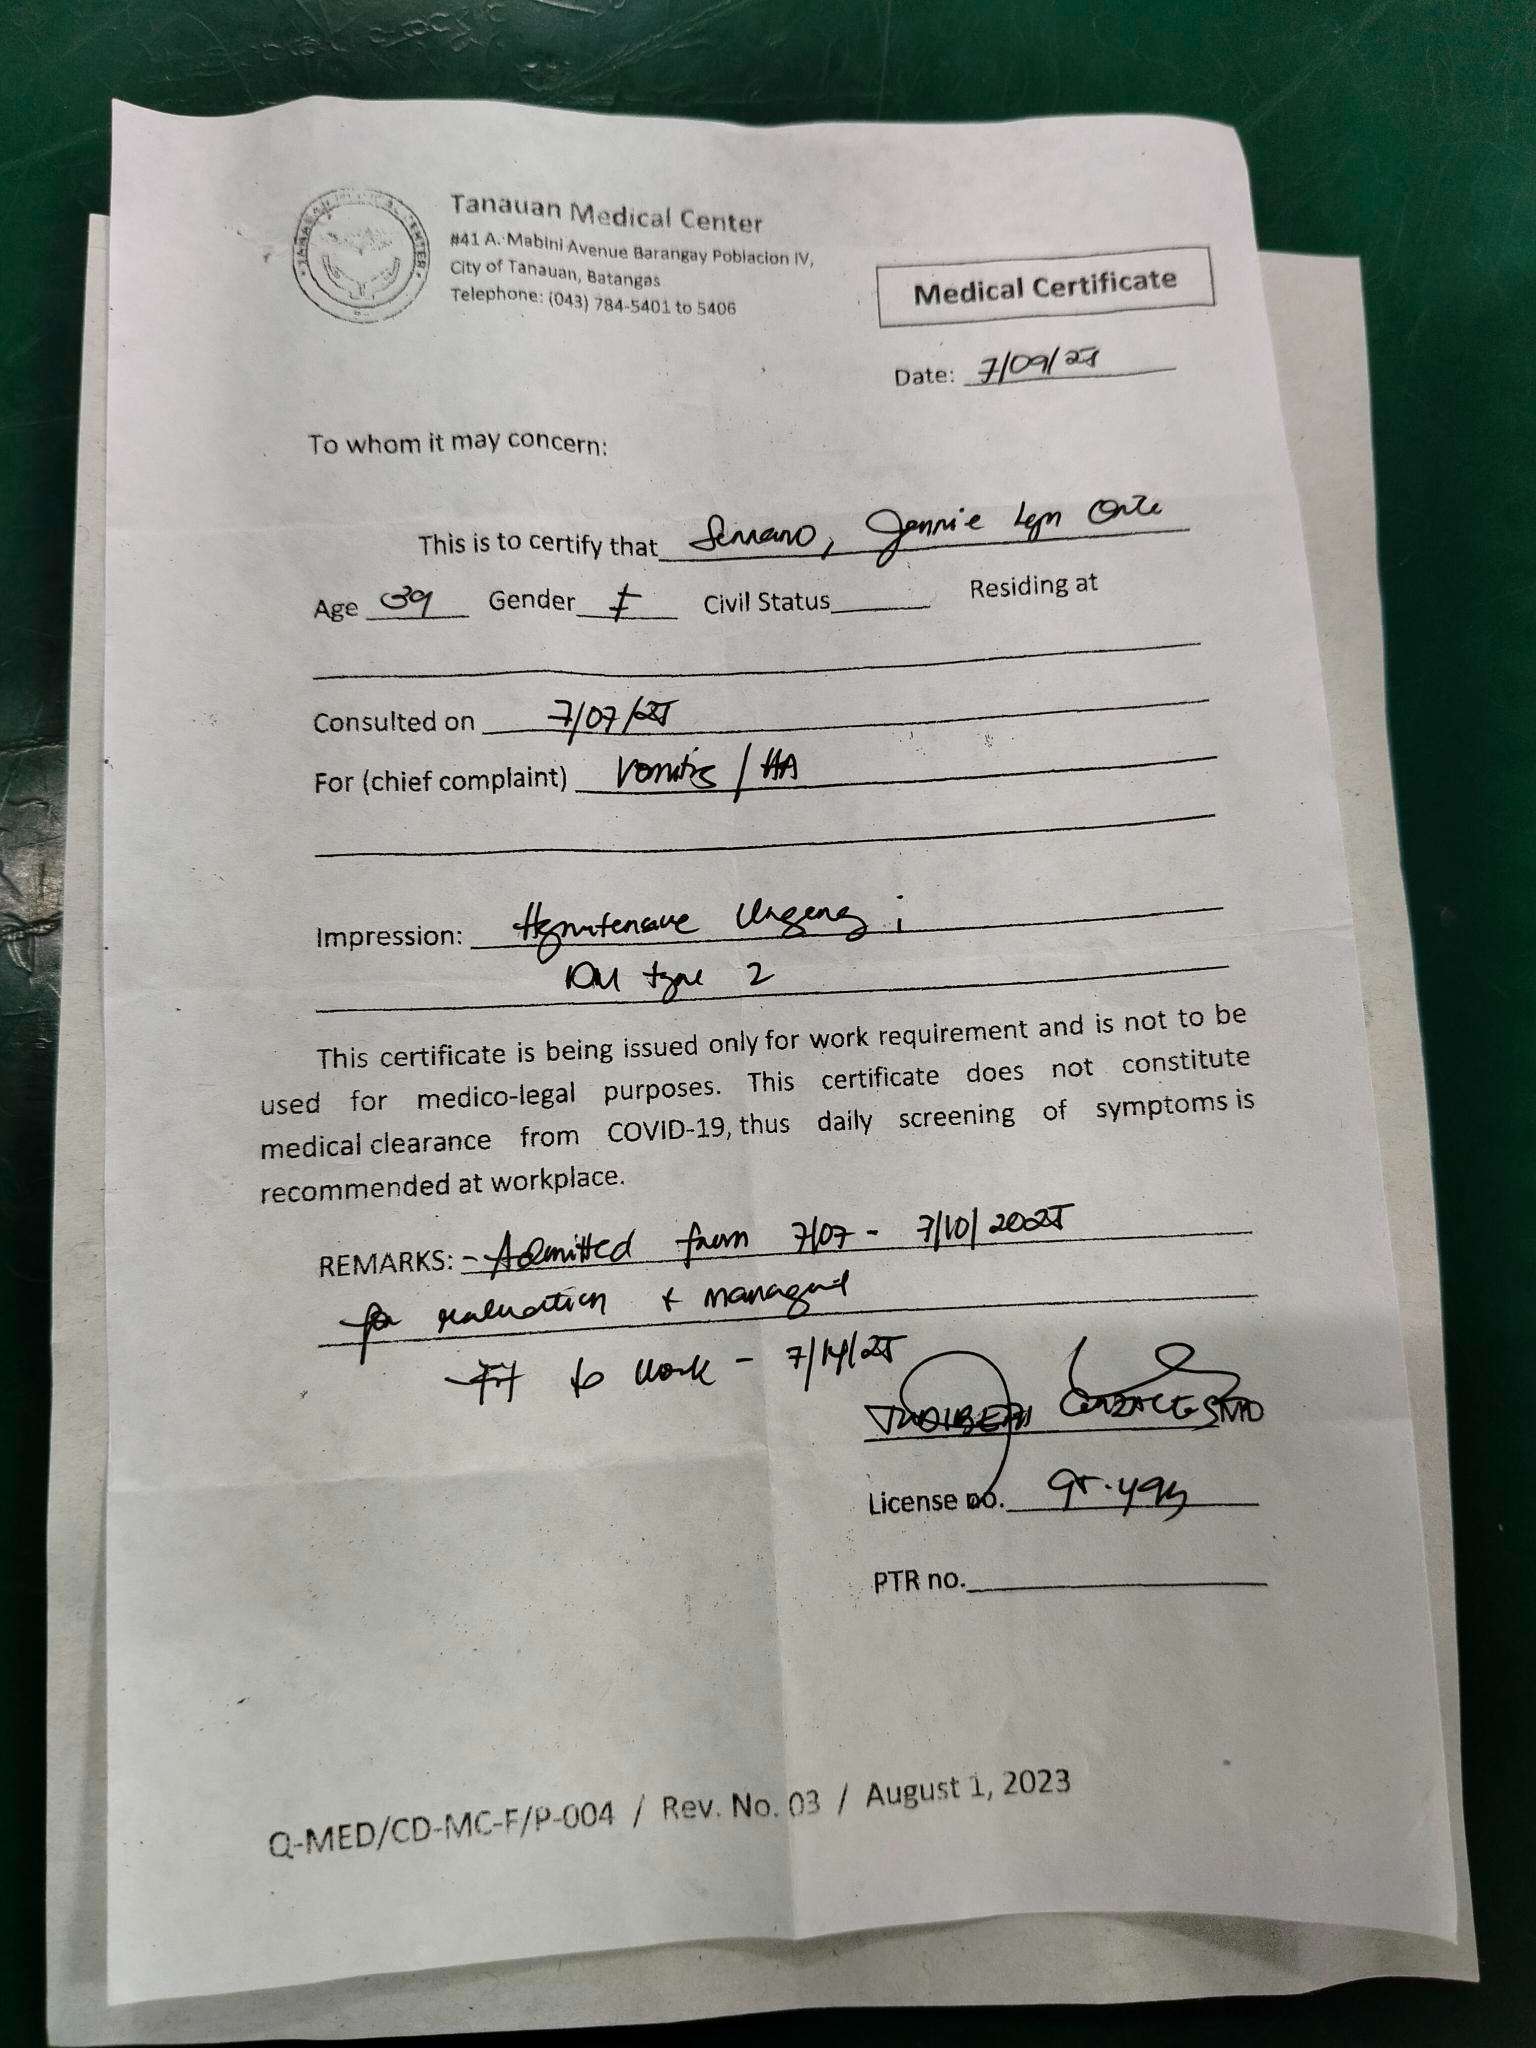 Tanauan Medical Center
#41 A. Mabini Avenue Barangay Poblacion IV,
City of Tanauan, Batangas
Telephone: (043) 784-5401 to 5406
Medical Certificate
Date: 7/09/25
To whom it may concern:
This is to certify that Serrano, Jennie Lyn
Age 39 Gender F Civil Status Residing at
Consulted on 7/07/25
For (chief complaint) Vomiting / HA
Impression: Hypertensive Urgency ;
DM type 2
This certificate is being issued only for work requirement and is not to be
used for medico-legal purposes. This certificate does not constitute
medical clearance from COVID-19, thus daily screening of symptoms is
recommended at workplace.
REMARKS: - Admitted from 7/07 - 7/10/2025
for evaluation + management
Fit to work - 7/14/25
GONZALES MD
License no.
PTR no.
Q-MED/CD-MC-F/P-004 / Rev. No. 03 / August 1, 2023